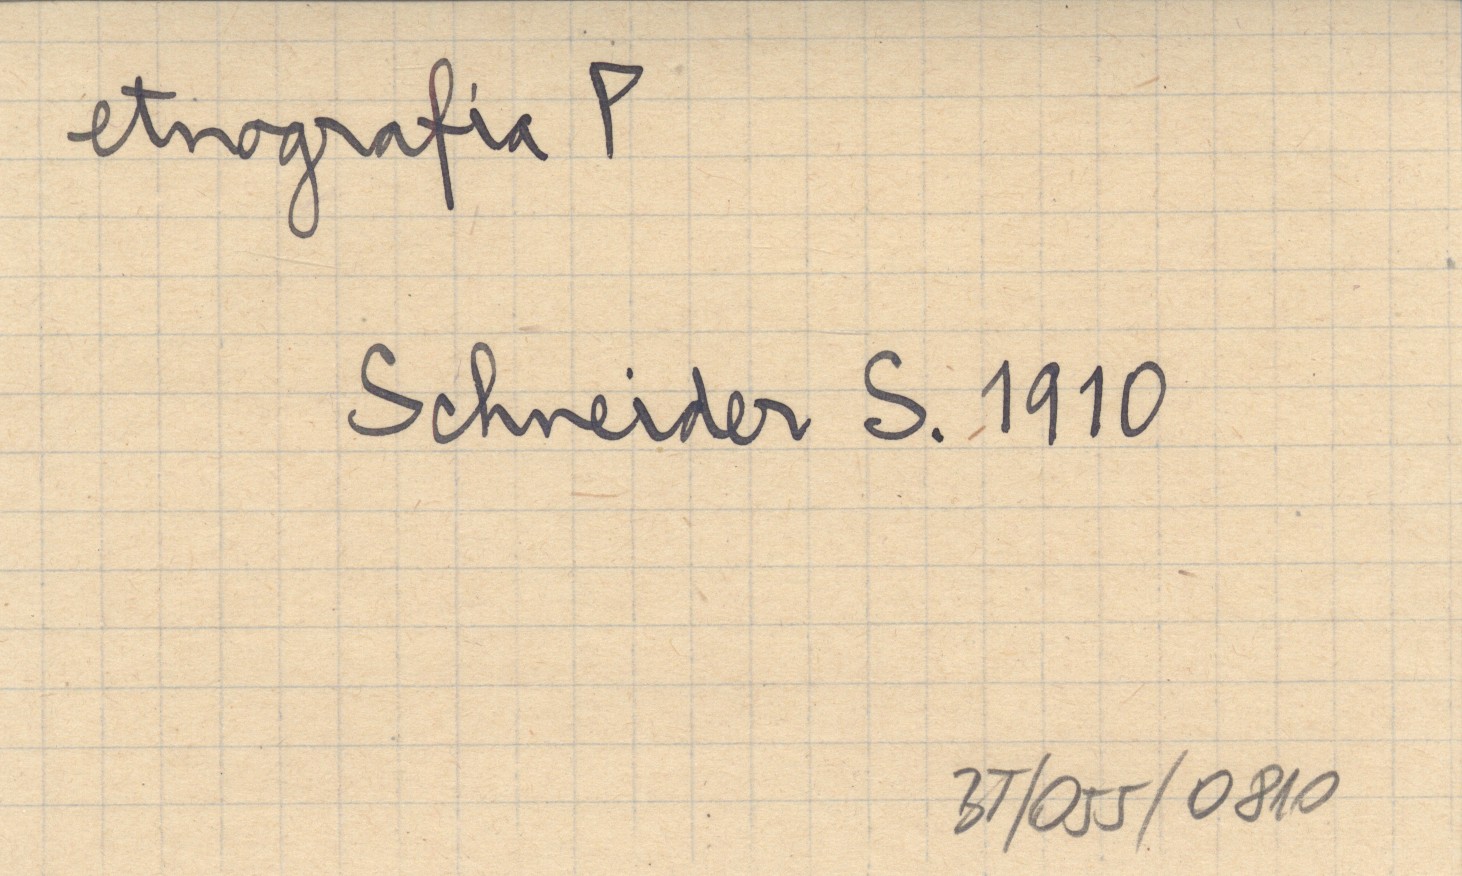 etnografia P
Schneider S. 1910
BT/055/0810